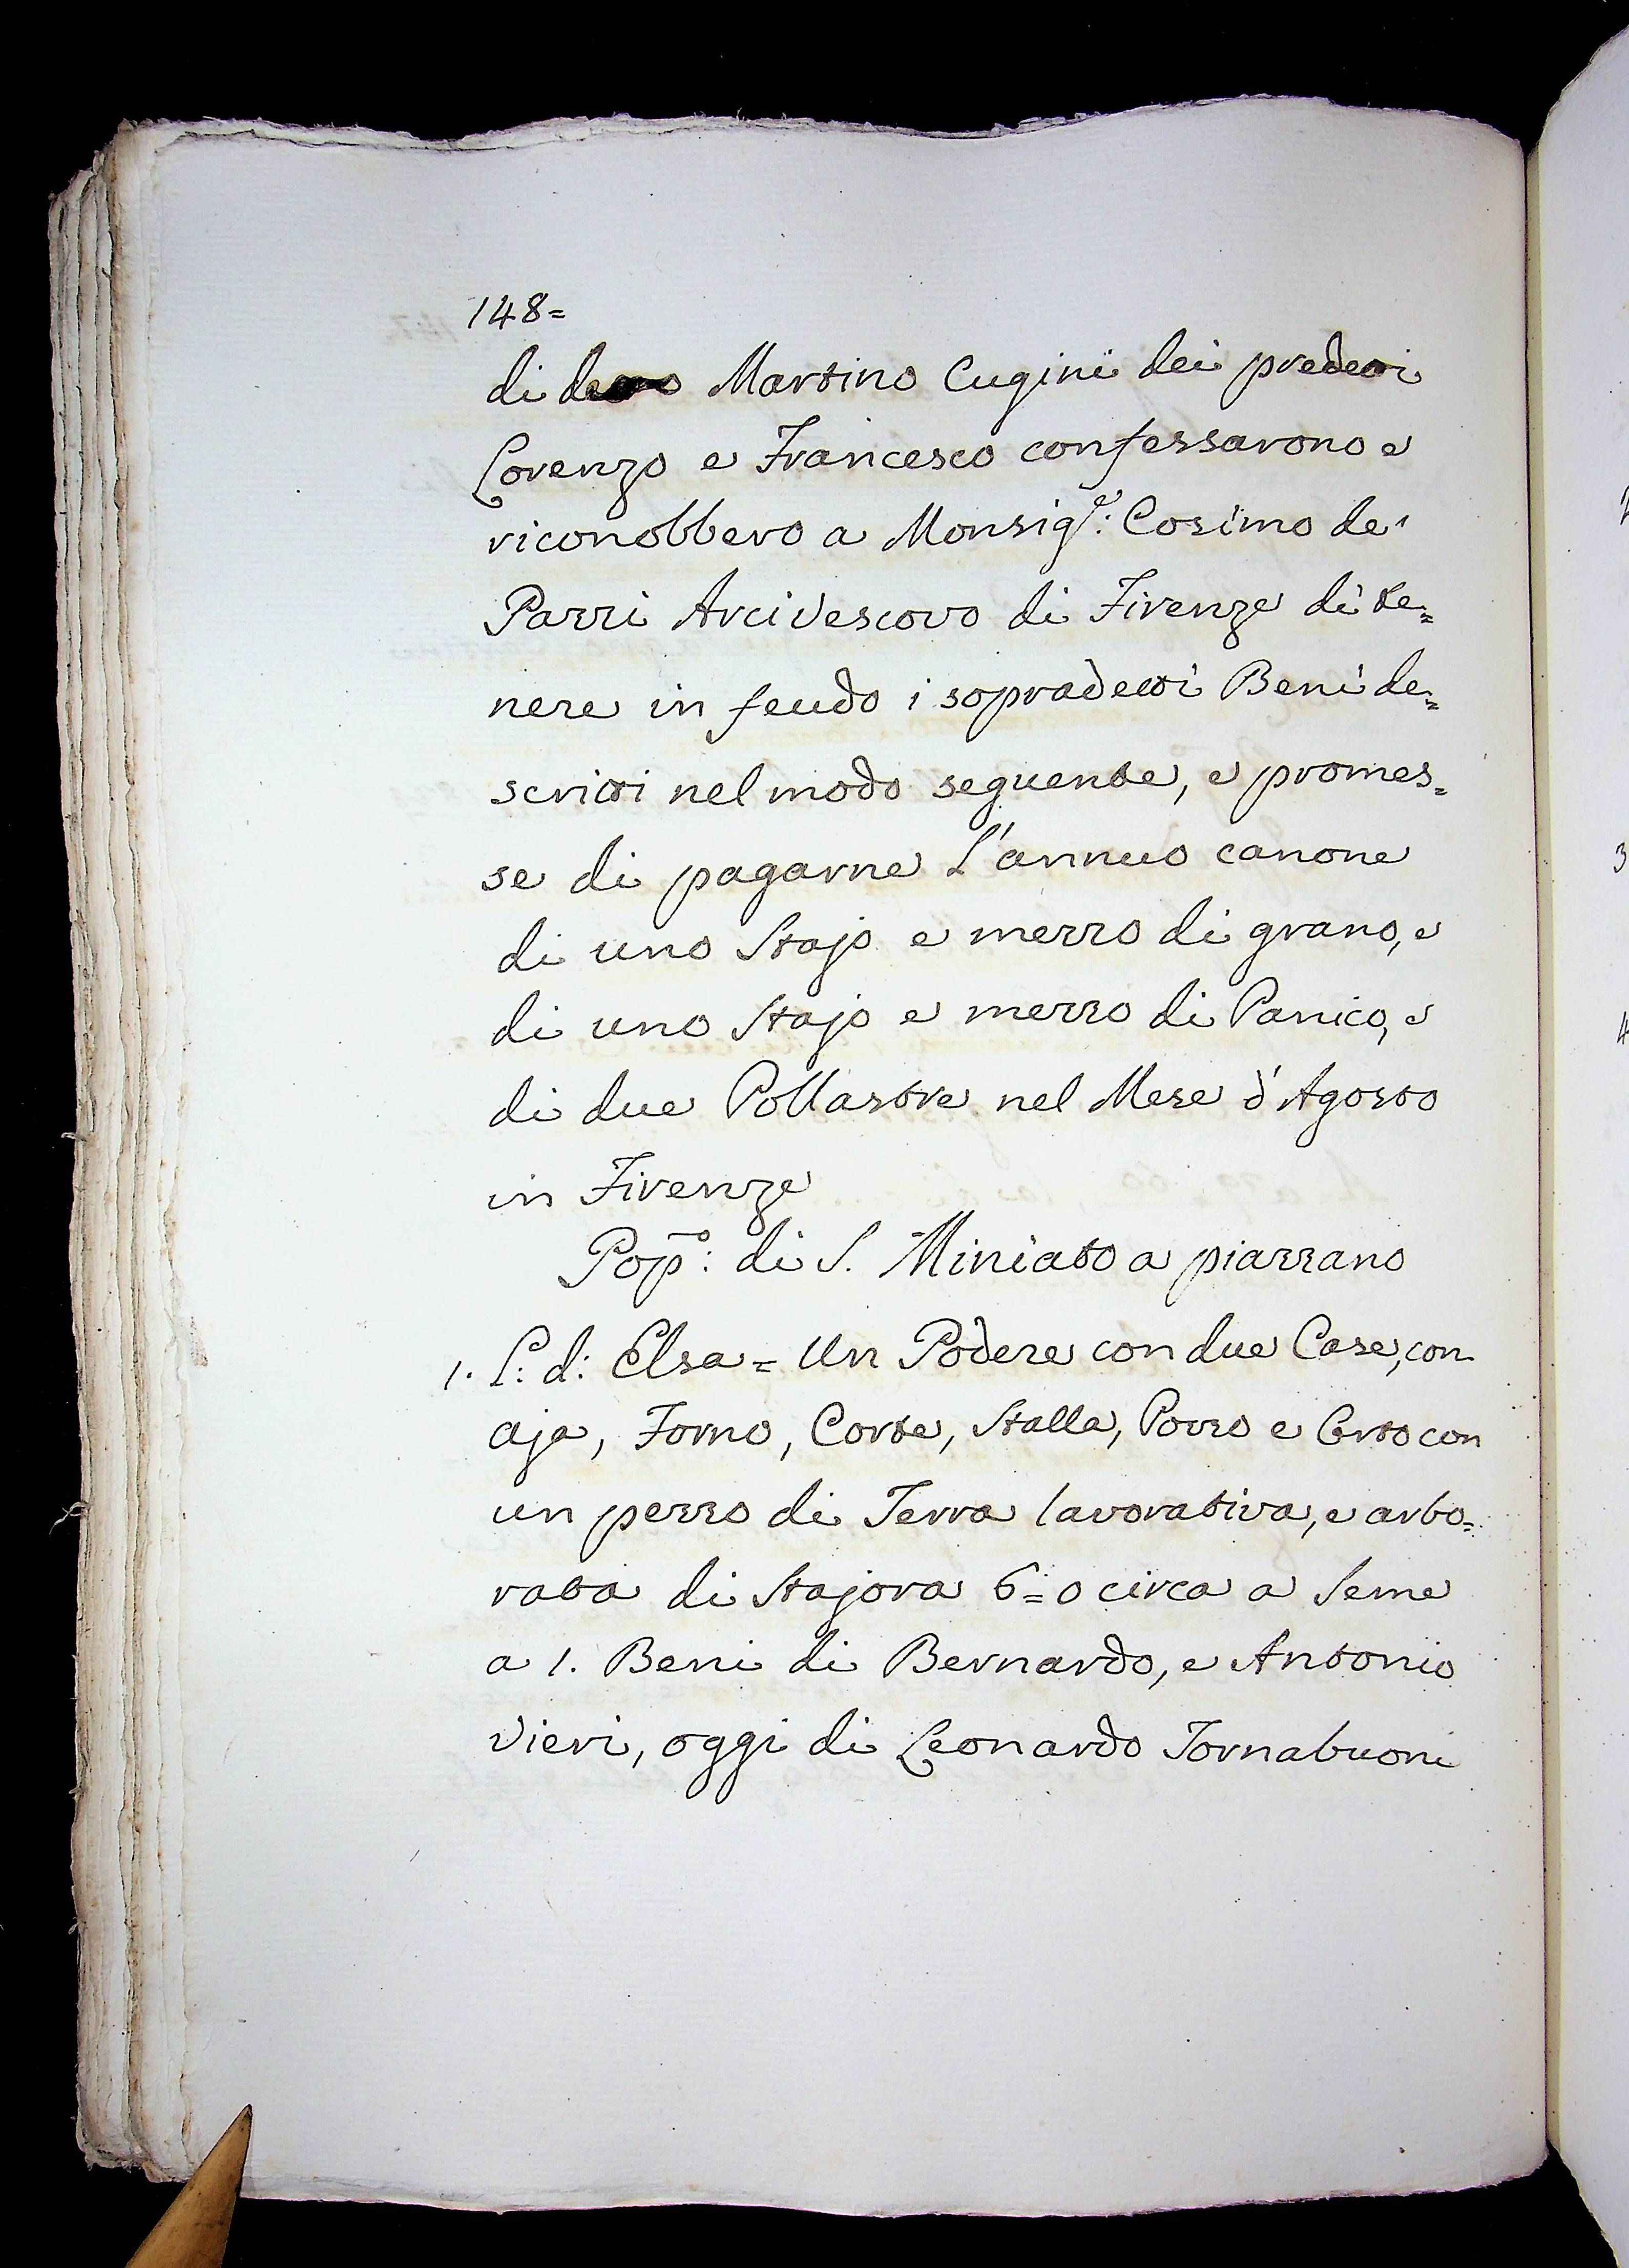 148=
di detto Martino Cugini dei predetti
Lorenzo e Francesco confessarono e
riconobbero a Monsig.e: Cosimo de'
Pazzi Arcivescovo di Firenze di te=
nere in feudo i sopradetti Beni de=
scritti nel modo seguente, e promes=
se di pagarne l'annuo canone
di uno Stajo e mezzo di grano, e
di uno Stajo e mezzo di Panico, e
di due Pollastre nel Mese d'Agosto
in Firenze
Pop.o: di S. Miniato a piazzano
1. L: d: Elsa = Un Podere con due Case, con
aja, Forno, Corte, Stalla, Pozzo e Orto con
un pezzo di Terra lavorativa, e arbo=
rata di Stajora 6=0 circa a Seme
a 1. Beni di Bernardo, e Antonio
Vieri, oggi di Leonardo Tornabuoni
3
4